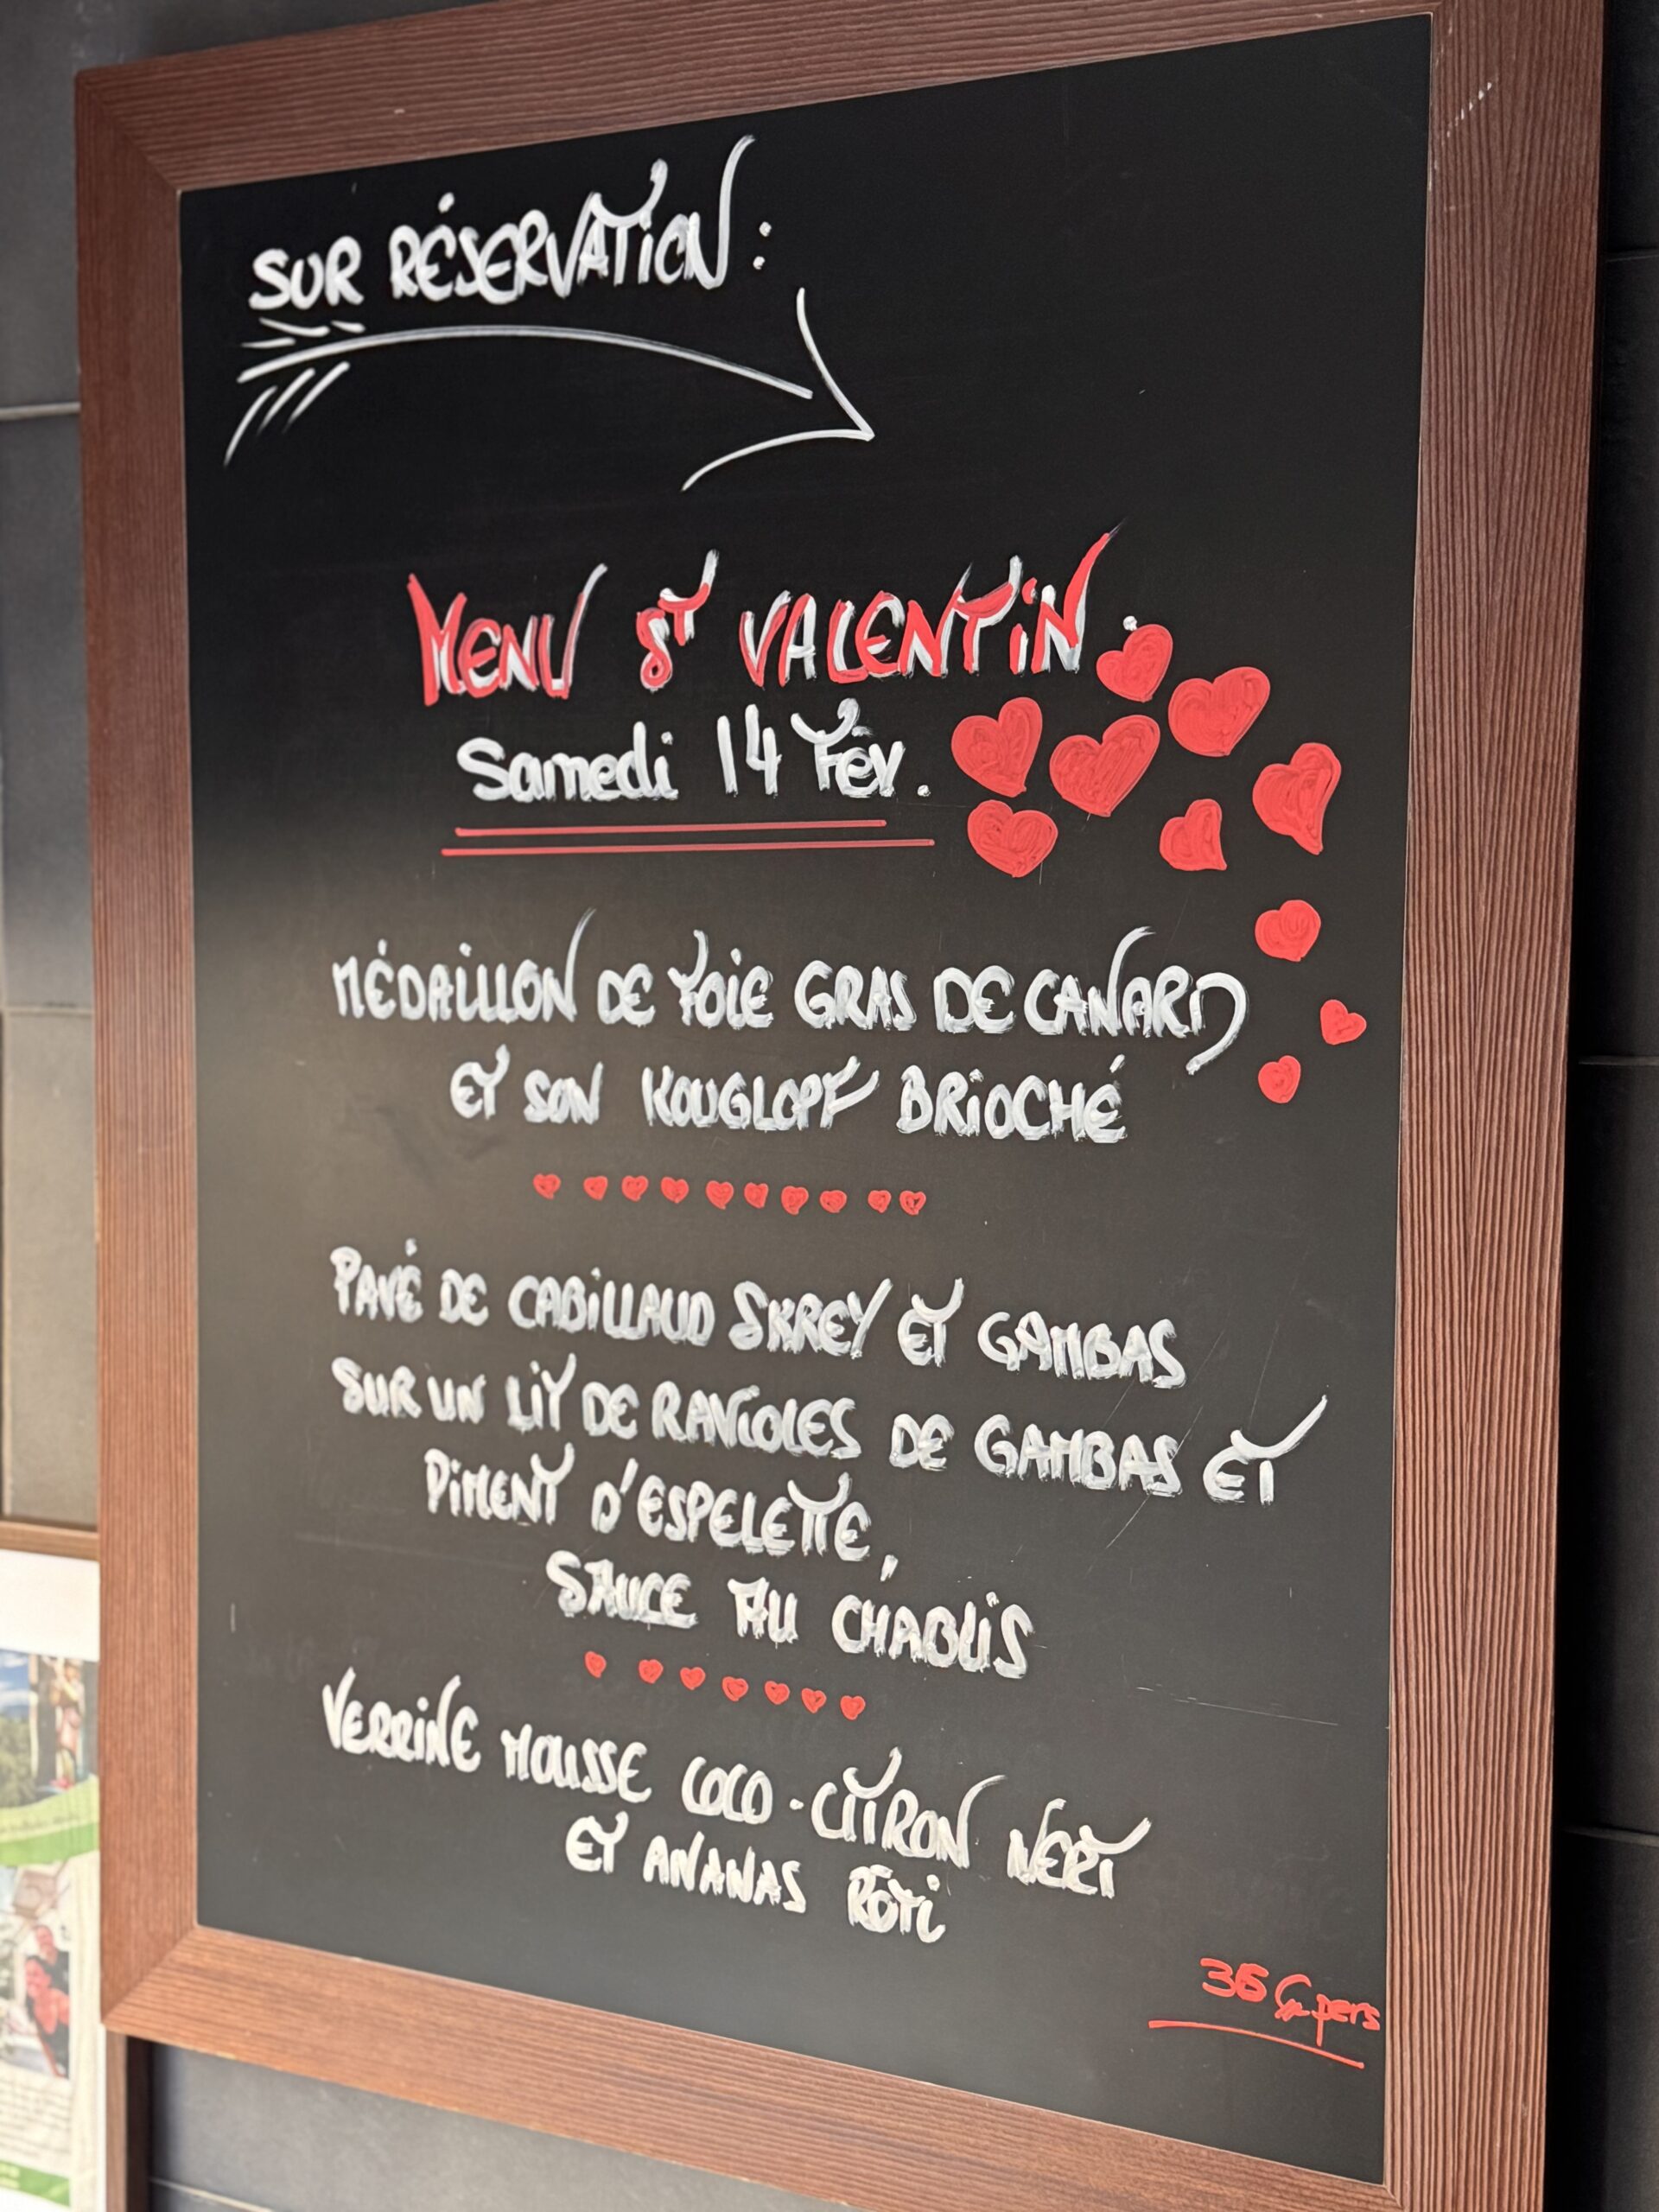 SUR RÉSERVATION :
MENU ST VALENTIN.
Samedi 14 Fév.
MÉDAILLON DE FOIE GRAS DE CANARD
ET SON KOUGLOPF BRIOCHÉ
PAVÉ DE CABILLAUD SKREY ET GAMBAS
SUR UN LIT DE RAVIOLES DE GAMBAS ET
PIMENT D'ESPELETTE,
SAUCE AU CHABLIS
VERRINE MOUSSE COCO-CITRON VERT
ET ANANAS RÔTI
36 € pers